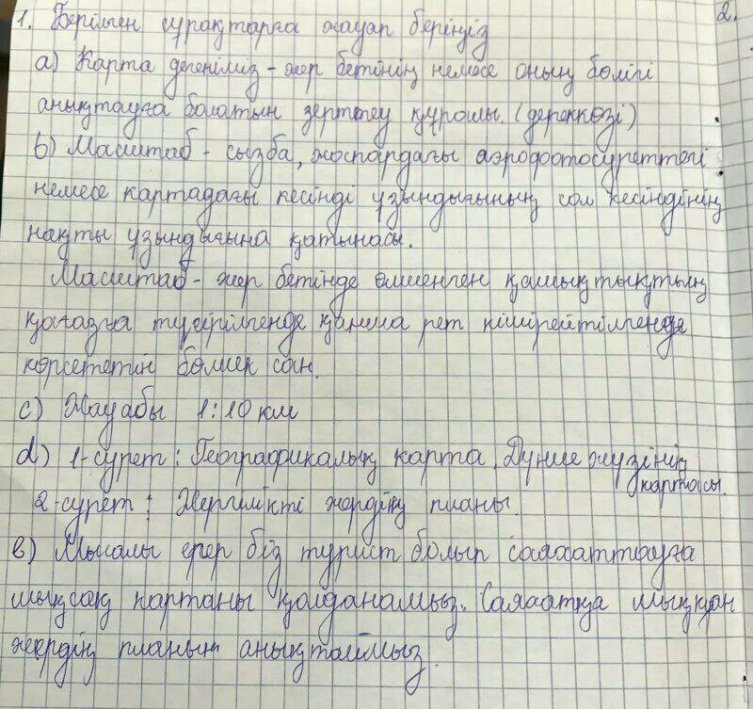 1. Берілген сұрақтарға жауап беріңіз
2.
a) Карта дегеніміз - жер бетінің немесе оның бөлігі
анықтауға болатын зерттеу құралы. (дереккөзі)
b) Масштаб - сызба, жоспардағы аэрофотосуреттегі
немесе картадағы кесінді ұзындығының сол кесіндінің
нақты ұзындығына қатынасы.
Масштаб - жер бетінде өлшенген қашықтықтың
қағазға түсірілгенде қанша рет кішірейтілгенде
көрсететін бөлшек сан.
c) Жауабы 1:10 км
d) 1-сурет: Географикалық карта. Дүние жүзінің
картасы.
2-сурет: Жергілікті жердің планы.
e) Мысалы егер біз турист болып саяхаттауға
шықсақ картаны қолданамыз. Саяхатқа шыққан
жердің планын анықтаймыз.